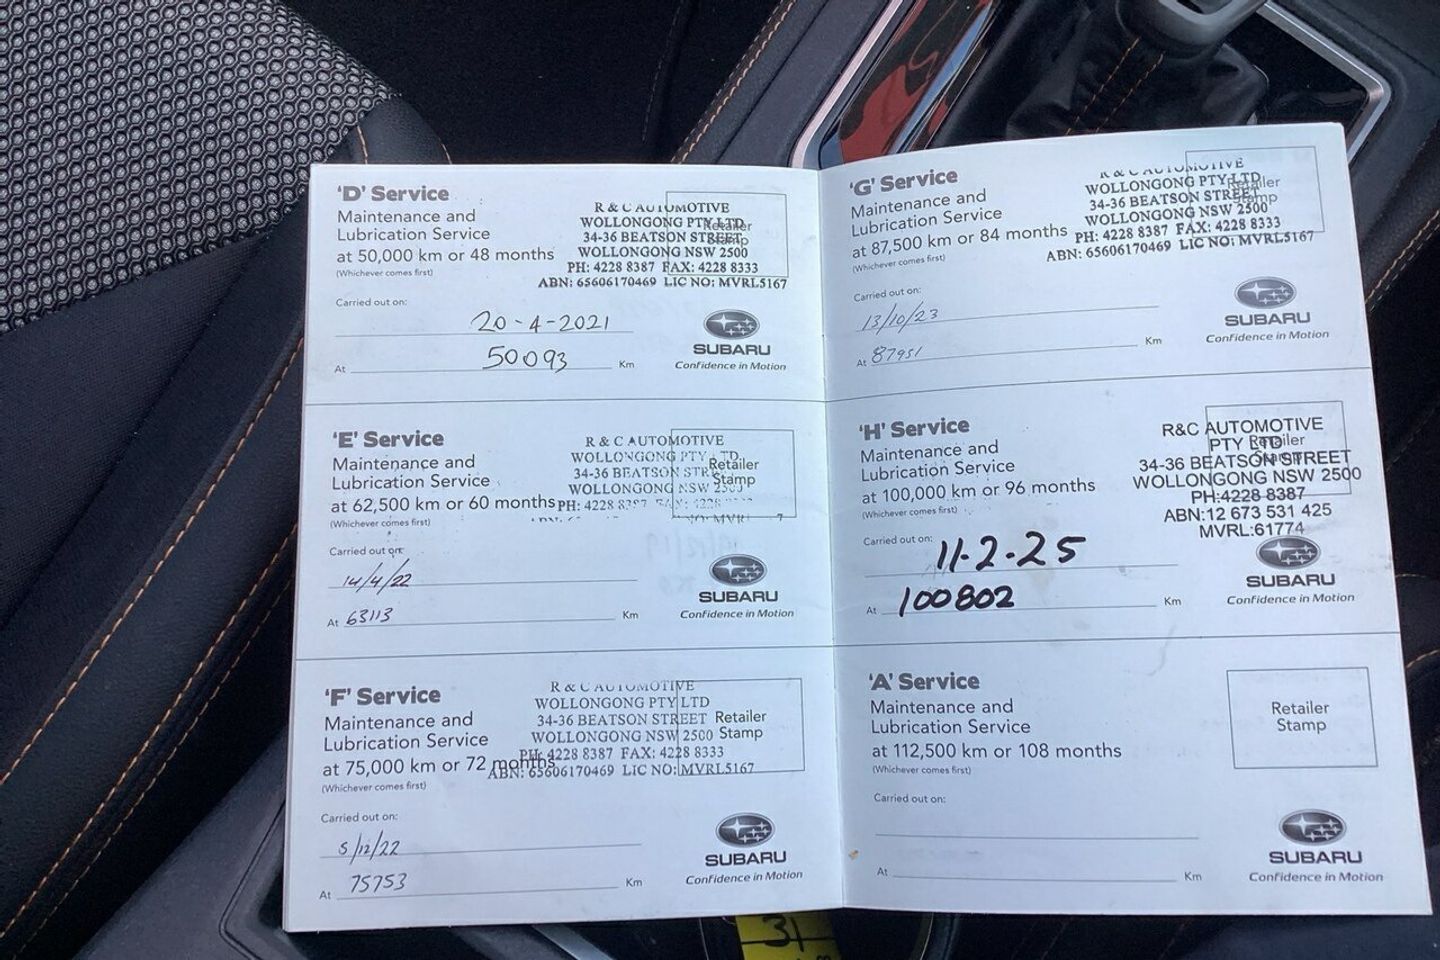 'D' Service
Maintenance and
Lubrication Service
at 50,000 km or 48 months
(Whichever comes first)
R & C AUTOMOTIVE
WOLLONGONG PTY LTD
34-36 BEATSON STREET
WOLLONGONG NSW 2500
PH: 4228 8387 FAX: 4228 8333
ABN: 65606170469 LIC NO: MVRL5167
Retailer
Stamp
Carried out on:
20-4-2021
At 50093 Km
SUBARU
Confidence in Motion
'E' Service
Maintenance and
Lubrication Service
at 62,500 km or 60 months
(Whichever comes first)
R & C AUTOMOTIVE
WOLLONGONG PTY LTD
34-36 BEATSON
WOLLONGONG NSW
PH: 4228
Retailer
Stamp
Carried out on:
14/4/22
At 63113 Km
SUBARU
Confidence in Motion
'F' Service
Maintenance and
Lubrication Service
at 75,000 km or 72 months
(Whichever comes first)
R & C AUTOMOTIVE
WOLLONGONG PTY LTD
34-36 BEATSON STREET
WOLLONGONG NSW 2500
PH: 4228 8387 FAX: 4228 8333
ABN: 65606170469 LIC NO: MVRL5167
Retailer
Stamp
Carried out on:
5/12/22
At 75753 Km
SUBARU
Confidence in Motion
'G' Service
Maintenance and
Lubrication Service
at 87,500 km or 84 months
(Whichever comes first)
R & C AUTOMOTIVE
WOLLONGONG PTY LTD
34-36 BEATSON STREET
WOLLONGONG NSW 2500
PH: 4228 8387 FAX: 4228 8333
ABN: 65606170469 LIC NO: MVRL5167
Retailer
Stamp
Carried out on:
13/10/23
At 87951 Km
SUBARU
Confidence in Motion
'H' Service
Maintenance and
Lubrication Service
at 100,000 km or 96 months
(Whichever comes first)
R&C AUTOMOTIVE
PTY LTD
34-36 BEATSON STREET
WOLLONGONG NSW 2500
PH:4228 8387
ABN:12 673 531 425
MVRL:61774
Retailer
Carried out on:
11-2-25
At 100802 Km
SUBARU
Confidence in Motion
'A' Service
Maintenance and
Lubrication Service
at 112,500 km or 108 months
(Whichever comes first)
Retailer
Stamp
Carried out on:
At Km
SUBARU
Confidence in Motion
31